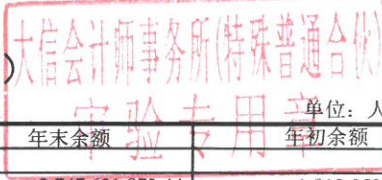 大信会计师事务所(特殊普通合伙)
审验专用章
单位：人
年末余额 年初余额